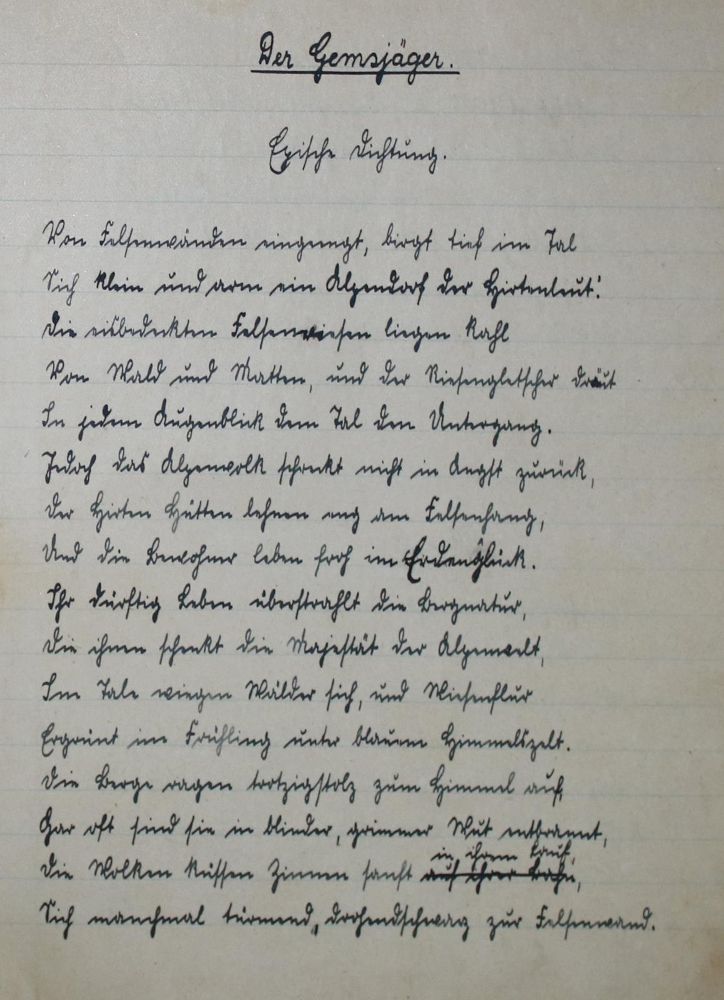 Der Gemsjäger.
Epische Dichtung.
Von Felsenwänden eingeengt, birgt tief im Tal
Sich klein und arm ein Alpendorf der Hirtenleut'.
Die eisbedeckten Felsenwiesen liegen kahl
Von Wald und Matten, und der Riesengletscher dräut
In jedem Augenblick dem Tal den Untergang.
Jedoch das Alpenvolk schreckt nicht in Angst zurück,
Der Hirten Hütten lehnen eng am Felsenhang,
Und die Bewohner leben froh im Erdenglück.
Ihr dürftig Leben überstrahlt die Bergnatur,
Die ihnen schenkt die Majestät der Alpenwelt,
Im Tale wiegen Wälder sich, und Wiesenflur
Ergrünt im Frühling unter blauem Himmelszelt.
Die Berge ragen trotzigstolz zum Himmel auf,
Gar oft sind sie in blinder, grimmer Wut entbrannt,
in ihrem Lauf,
Die Wolken küssen Zinnen sanft auf ihrer Bahn,
Sich manchmal türmend, drohendschwarz zur Felsenwand.